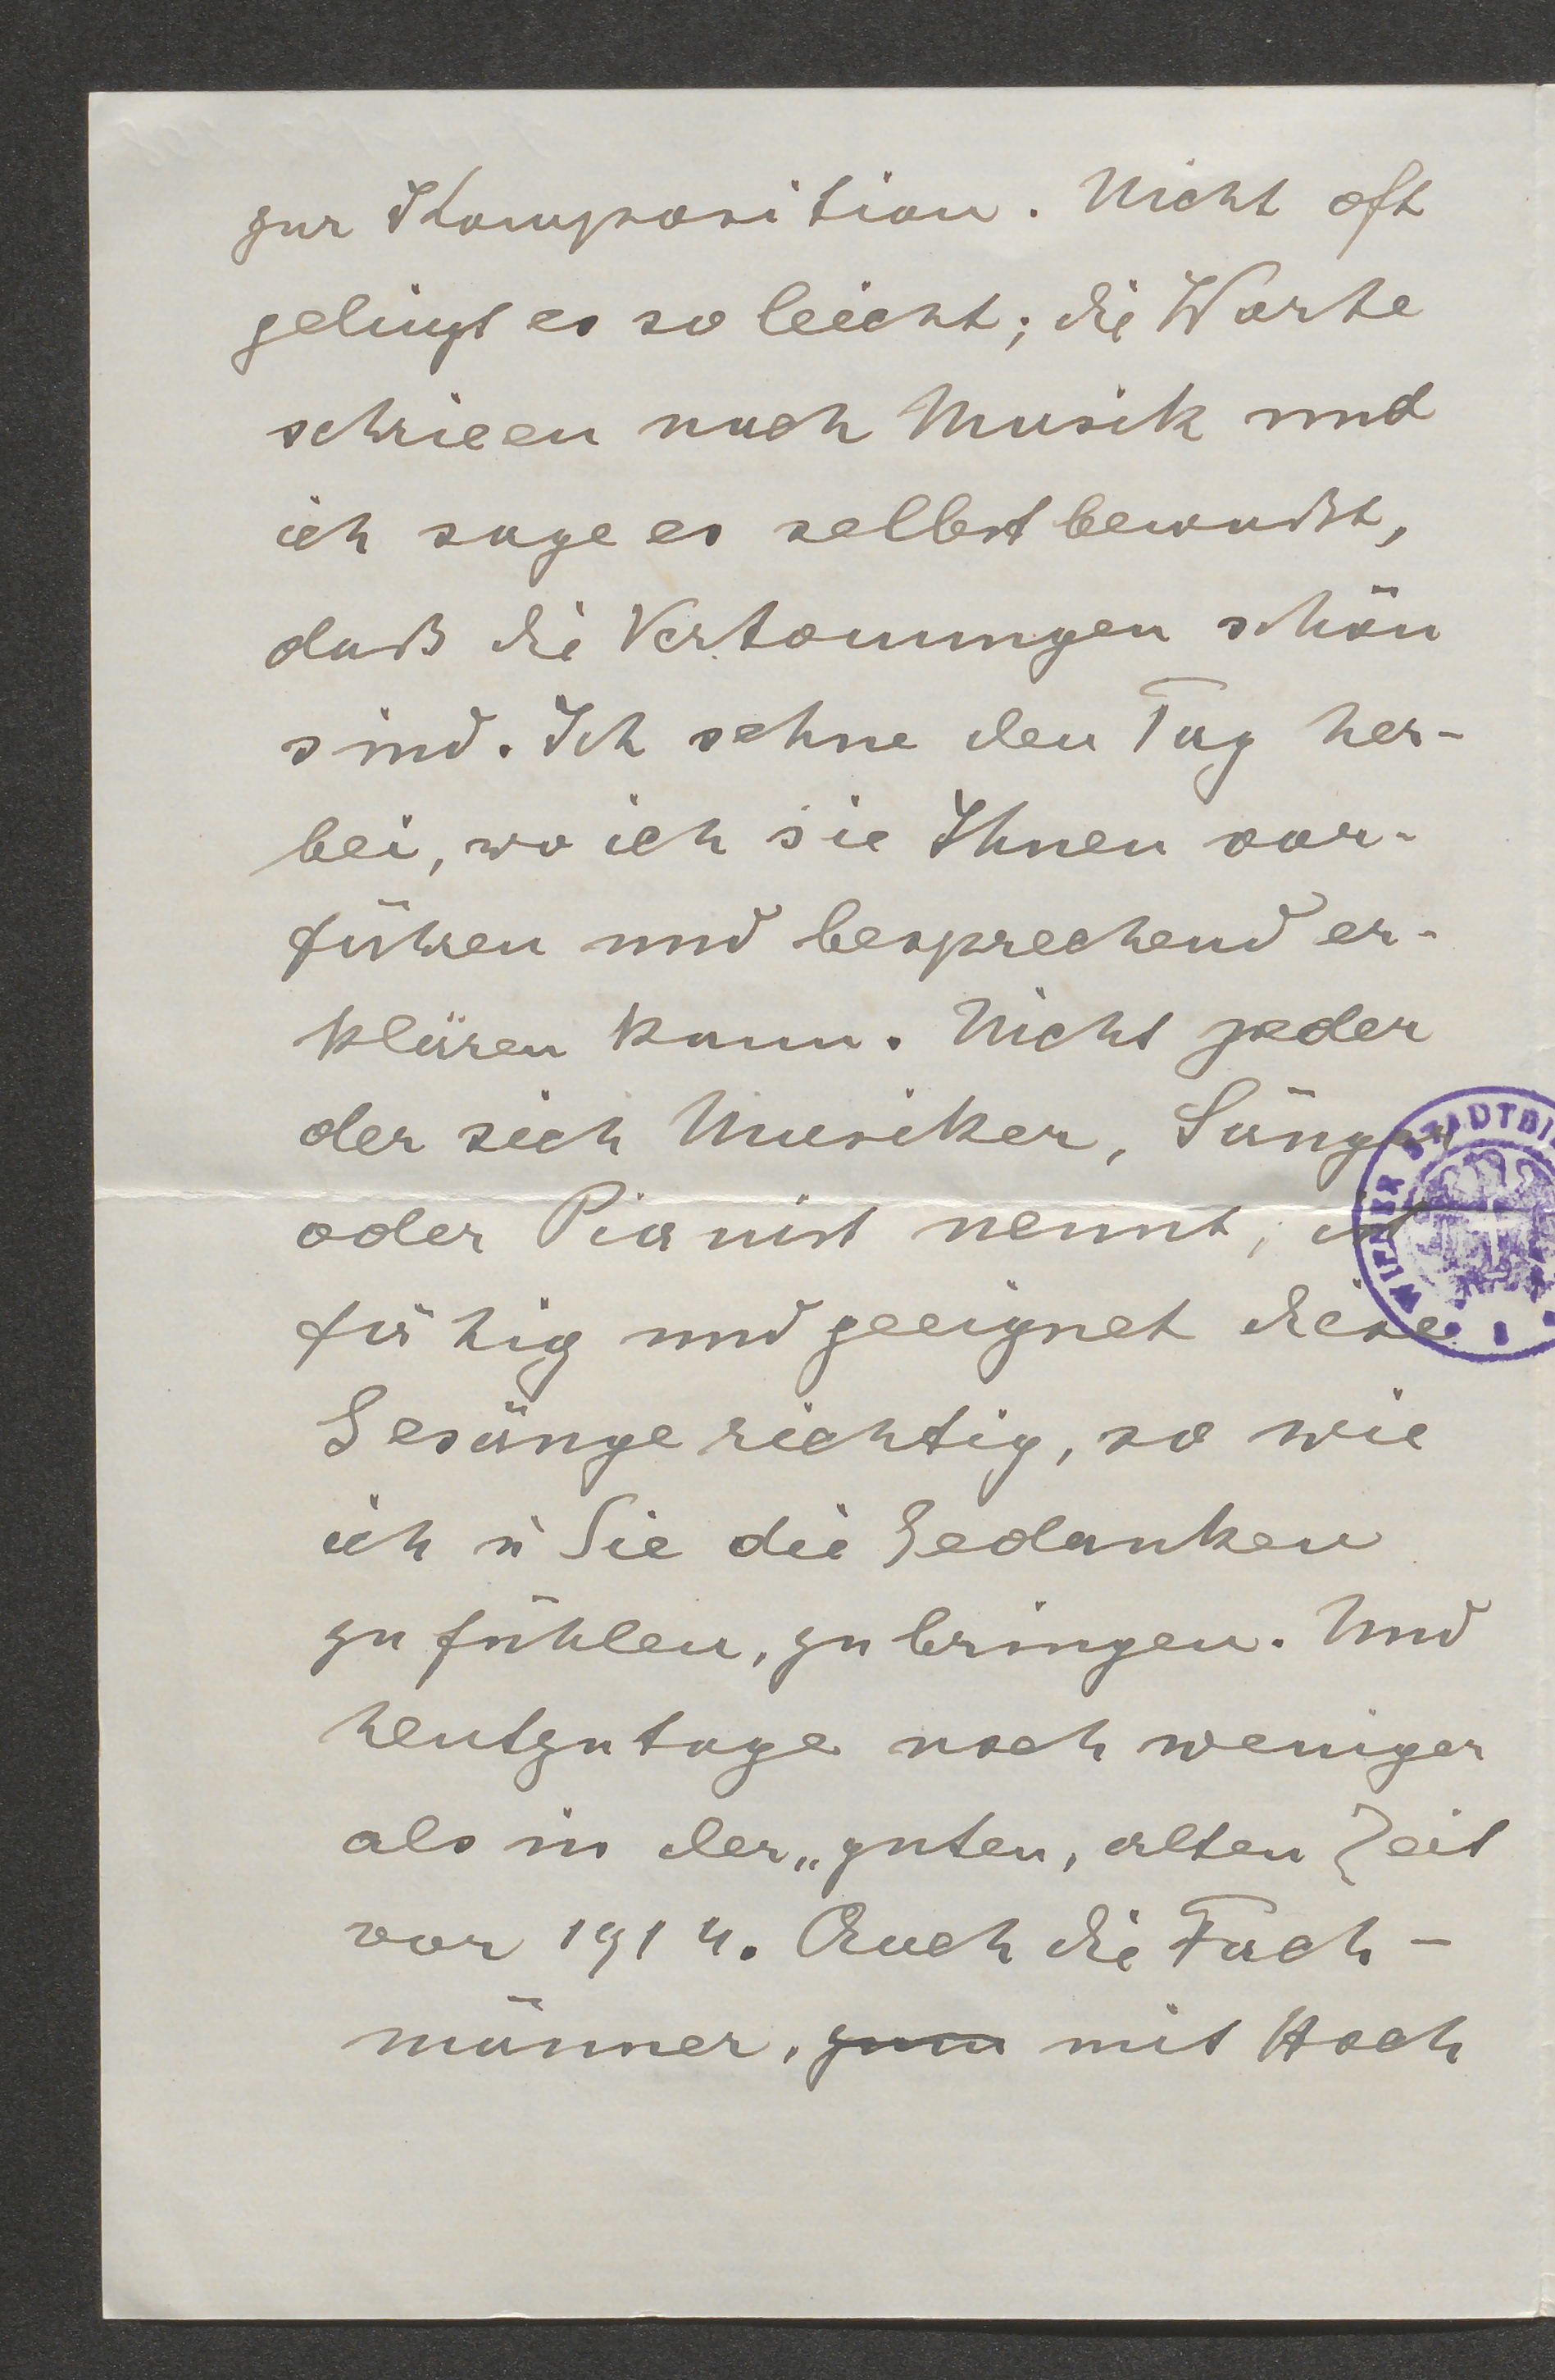 zur Komposition. Nicht oft
gelingt es so leicht; die Worte
schrieen nach Musik und
ich sage es selbstbewußt,
daß die Vertonungen schön
sind. Ich sehne den Tag her-
bei, wo ich sie Ihnen vor-
führen und besprechend er-
klären kann. Nicht jeder
der sich Musiker, Sänger
oder Pianist nennt, ist
fähig und geeignet diese
Gesänge richtig, so wie
ich u Sie die Gedanken
zu fühlen, zu bringen. Und
heutzutage noch weniger
als in der „guten, alten Zeit
vor 1914. Auch die Fach-
männer, mit Hoch
WIENER STADTBI